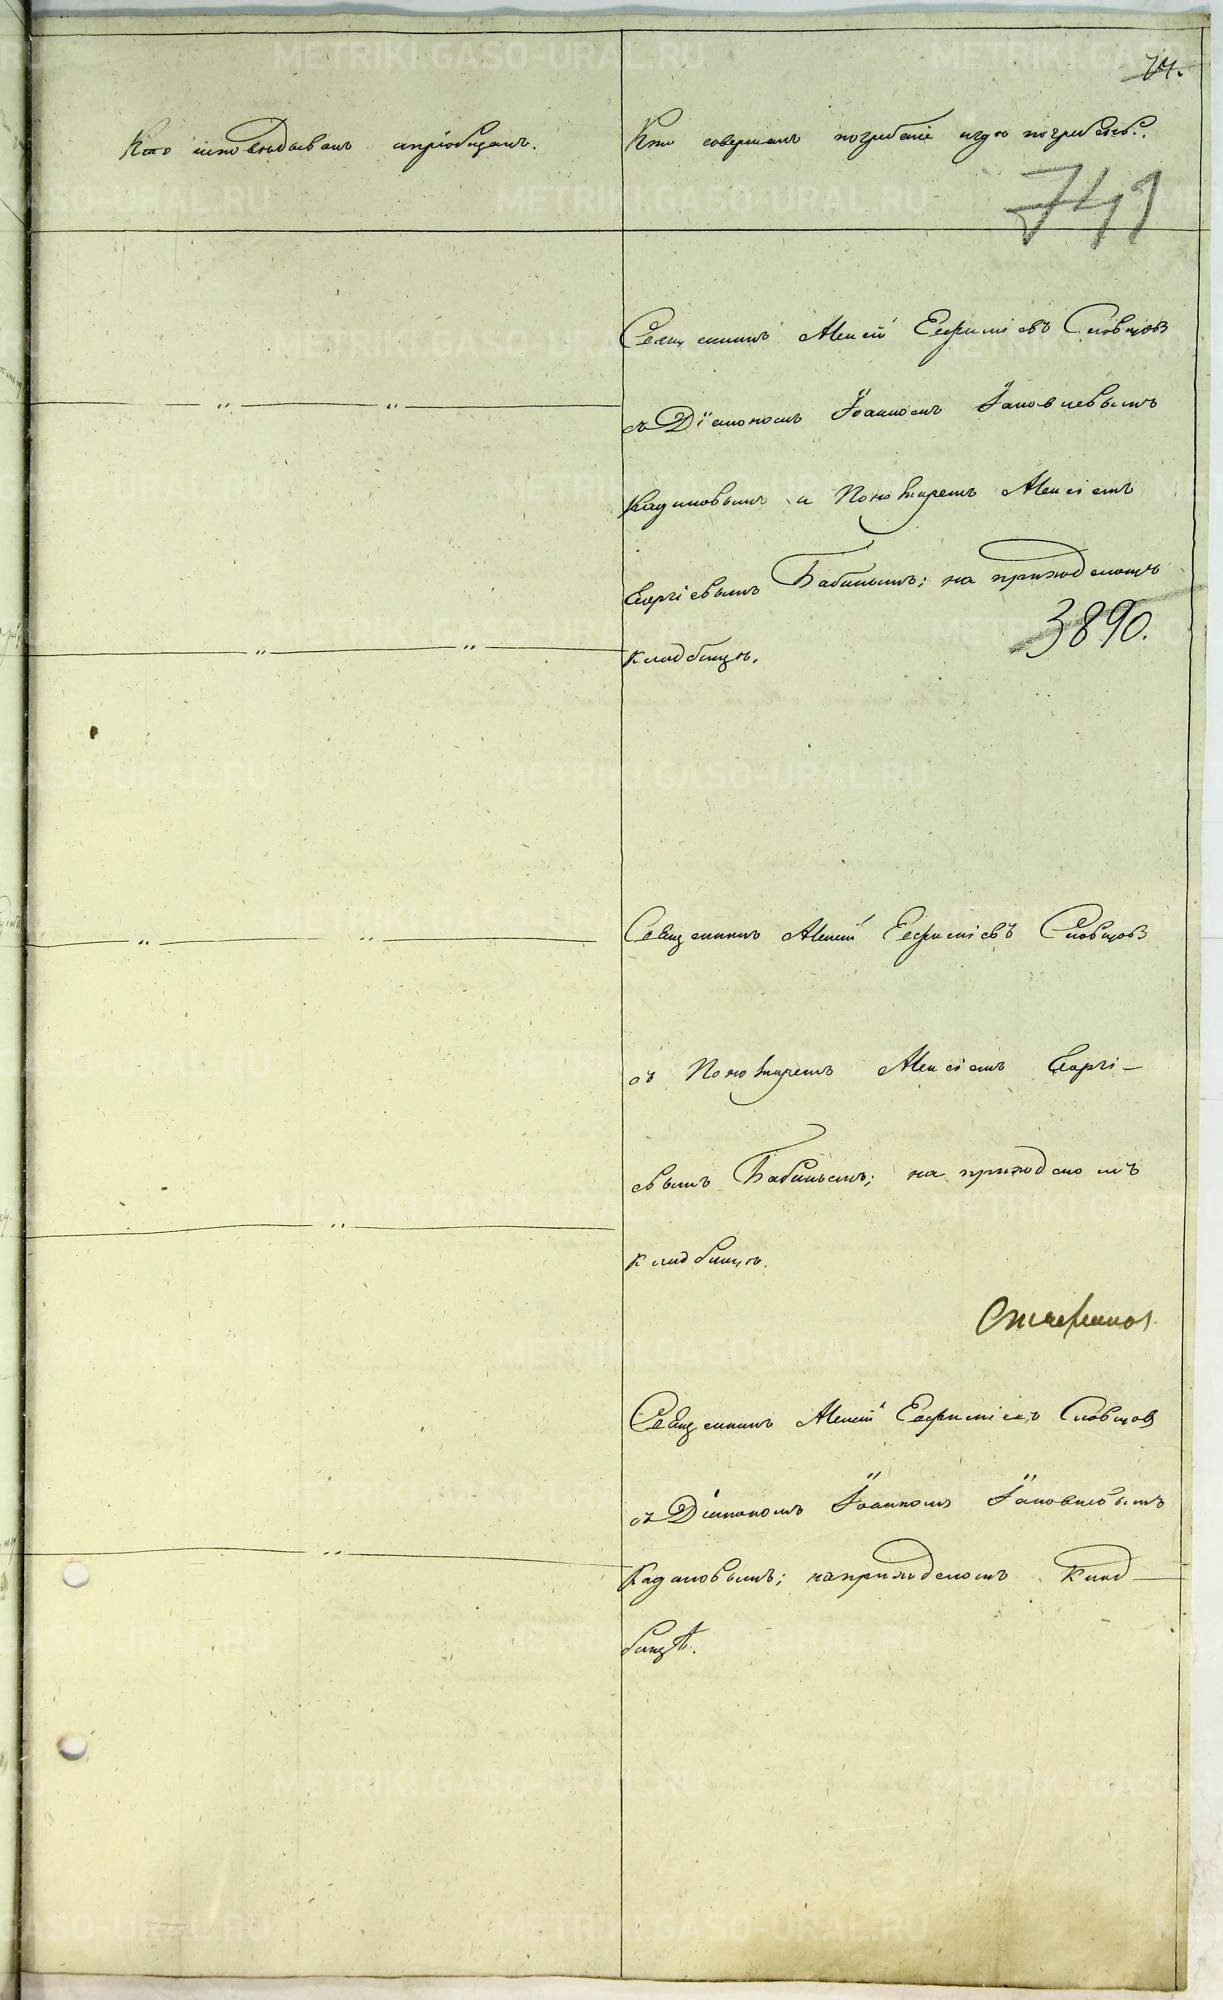 74.
Кто исповѣдывалъ ипріобщалъ.
Кто совершалъ погребеніе игдѣ погребены.
741
Священникъ Алексій Евфиміевъ Словцовъ
съ Діакономъ Іоанномъ Іаковлевымъ
и Пономаремъ Алексіемъ
Георгіевымъ Бабинымъ; на приходскомъ
3890.
кладбищѣ.
Священникъ Алексій Евфиміевъ Словцовъ
съ Пономаремъ Алексіемъ Георгі-
евымъ Бабинымъ; на приходскомъ
кладбищѣ.
Священникъ Алексій Евфиміевъ Словцовъ
съ Діакономъ Іоанномъ Іаковлевымъ
наприходскомъ клад-
бищѣ.
METRIKI.GASO-URAL.RU